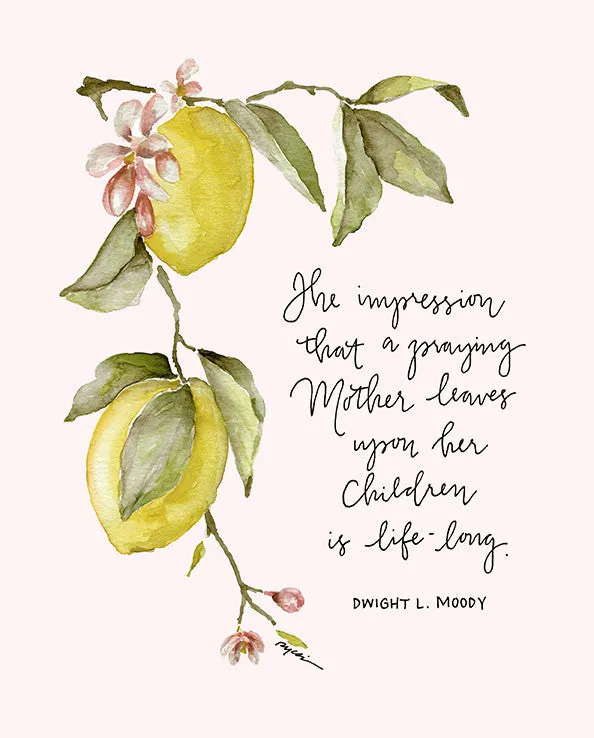 The impression
that a praying
Mother leaves
upon her
Children
is life-long.
DWIGHT L. MOODY